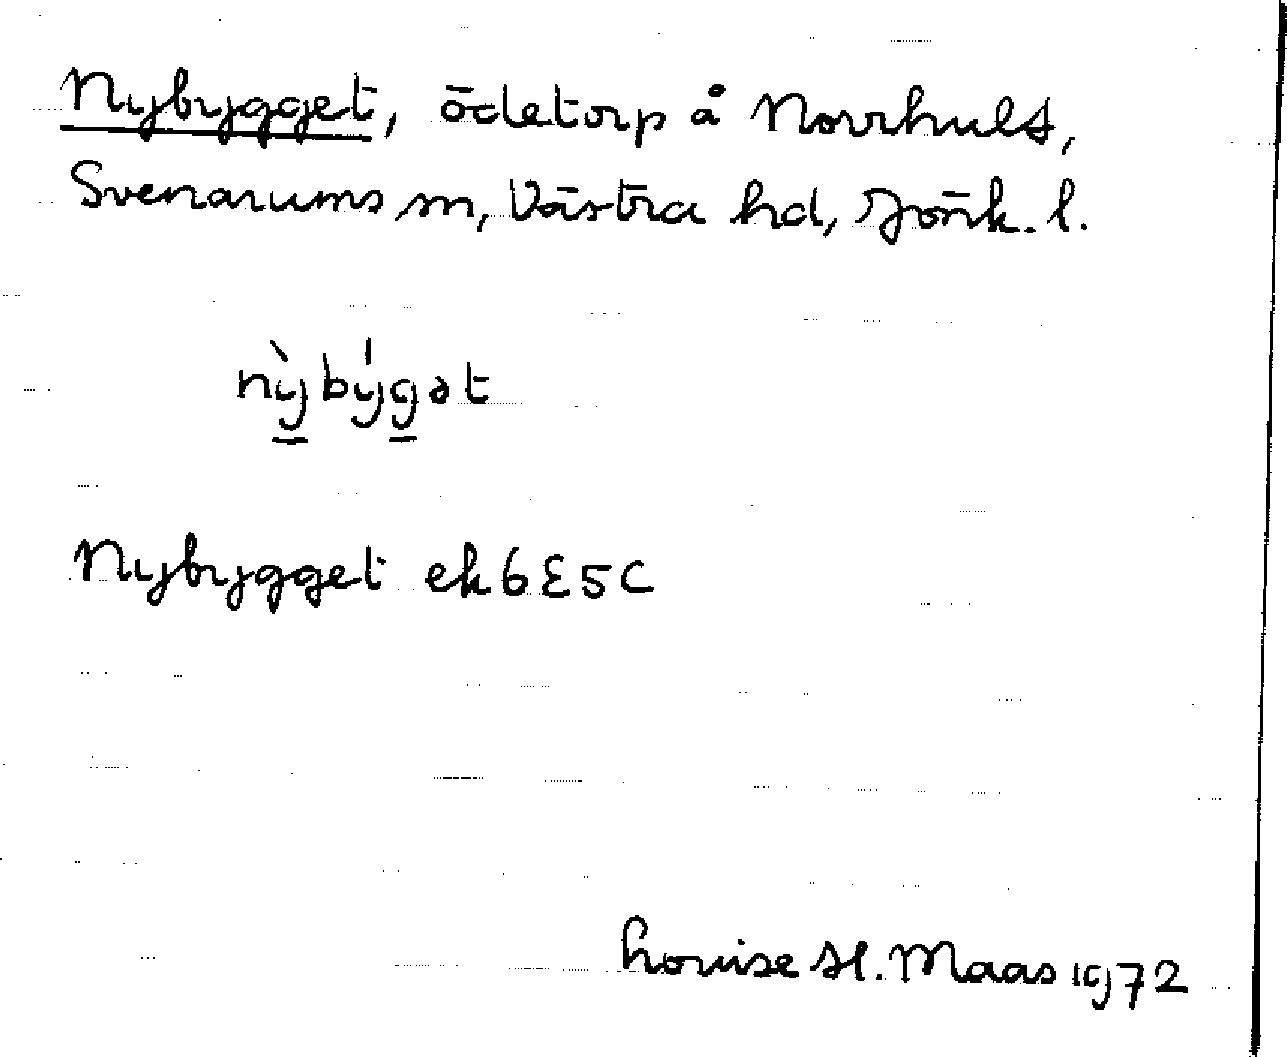 Nybygget, ödetorp å Norrhult,
Svenarums sn, Västra hd, Jönk. l.
nỳbýgət
Nybygget ek 6E5C
Louise H. Maas 1972